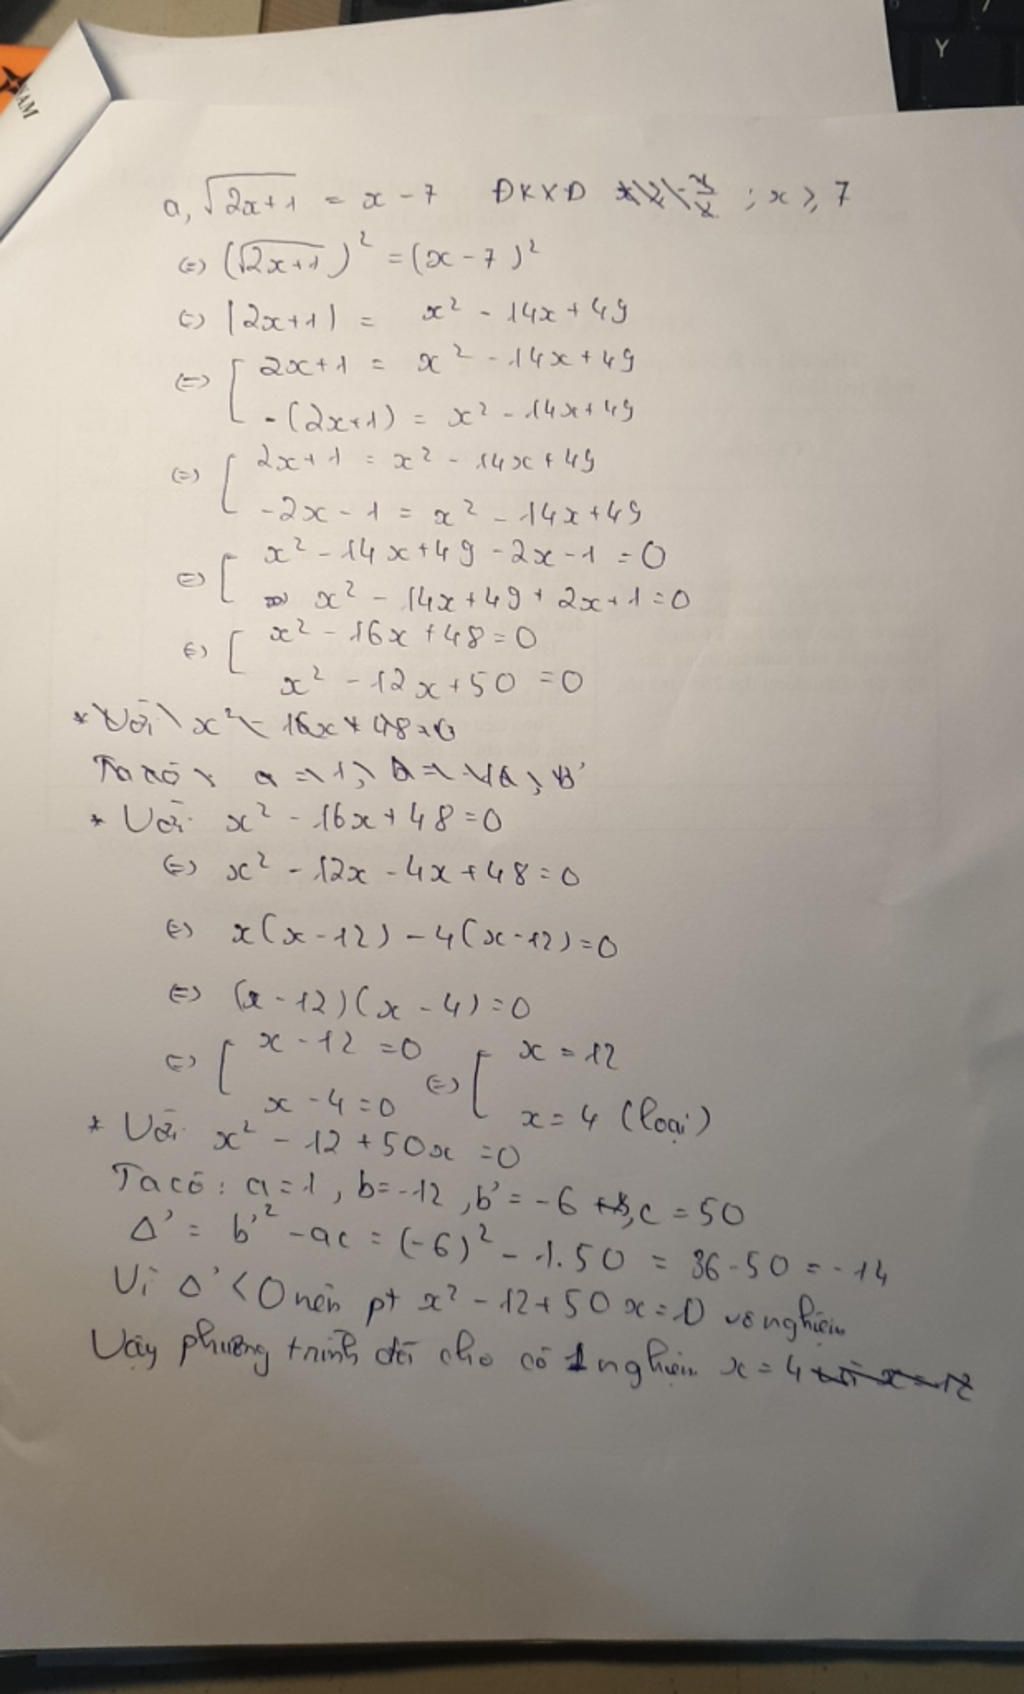 NAM
Y
a, √2x+1 = x - 7 ĐKXĐ ; x ⩾ 7
(=) (√2x+1)² = (x - 7)²
(=) |2x+1| = x² - 14x + 49
(=) [ 2x+1 = x² - 14x + 49
-(2x+1) = x² - 14x + 49
(=) [ 2x+1 = x² - 14x + 49
-2x - 1 = x² - 14x + 49
(=) [ x² - 14x + 49 - 2x - 1 = 0
x² - 14x + 49 + 2x + 1 = 0
(=) [ x² - 16x + 48 = 0
x² - 12x + 50 = 0
* Với x² - 16x + 48 = 0
Ta có
* Với x² - 16x + 48 = 0
(=) x² - 12x - 4x + 48 = 0
(=) x(x - 12) - 4(x - 12) = 0
(=) (x - 12)(x - 4) = 0
(=) [ x - 12 = 0 (=) [ x = 12
x - 4 = 0 x = 4 (loại)
* Với x² - 12 + 50x = 0
Ta có: a = 1, b = -12, b' = -6, c = 50
Δ' = b'² - ac = (-6)² - 1.50 = 36 - 50 = -14
Vì Δ' < 0 nên pt x² - 12 + 50x = 0 vô nghiệm
Vậy phương trình đã cho có 1 nghiệm x = 4 và x = 12